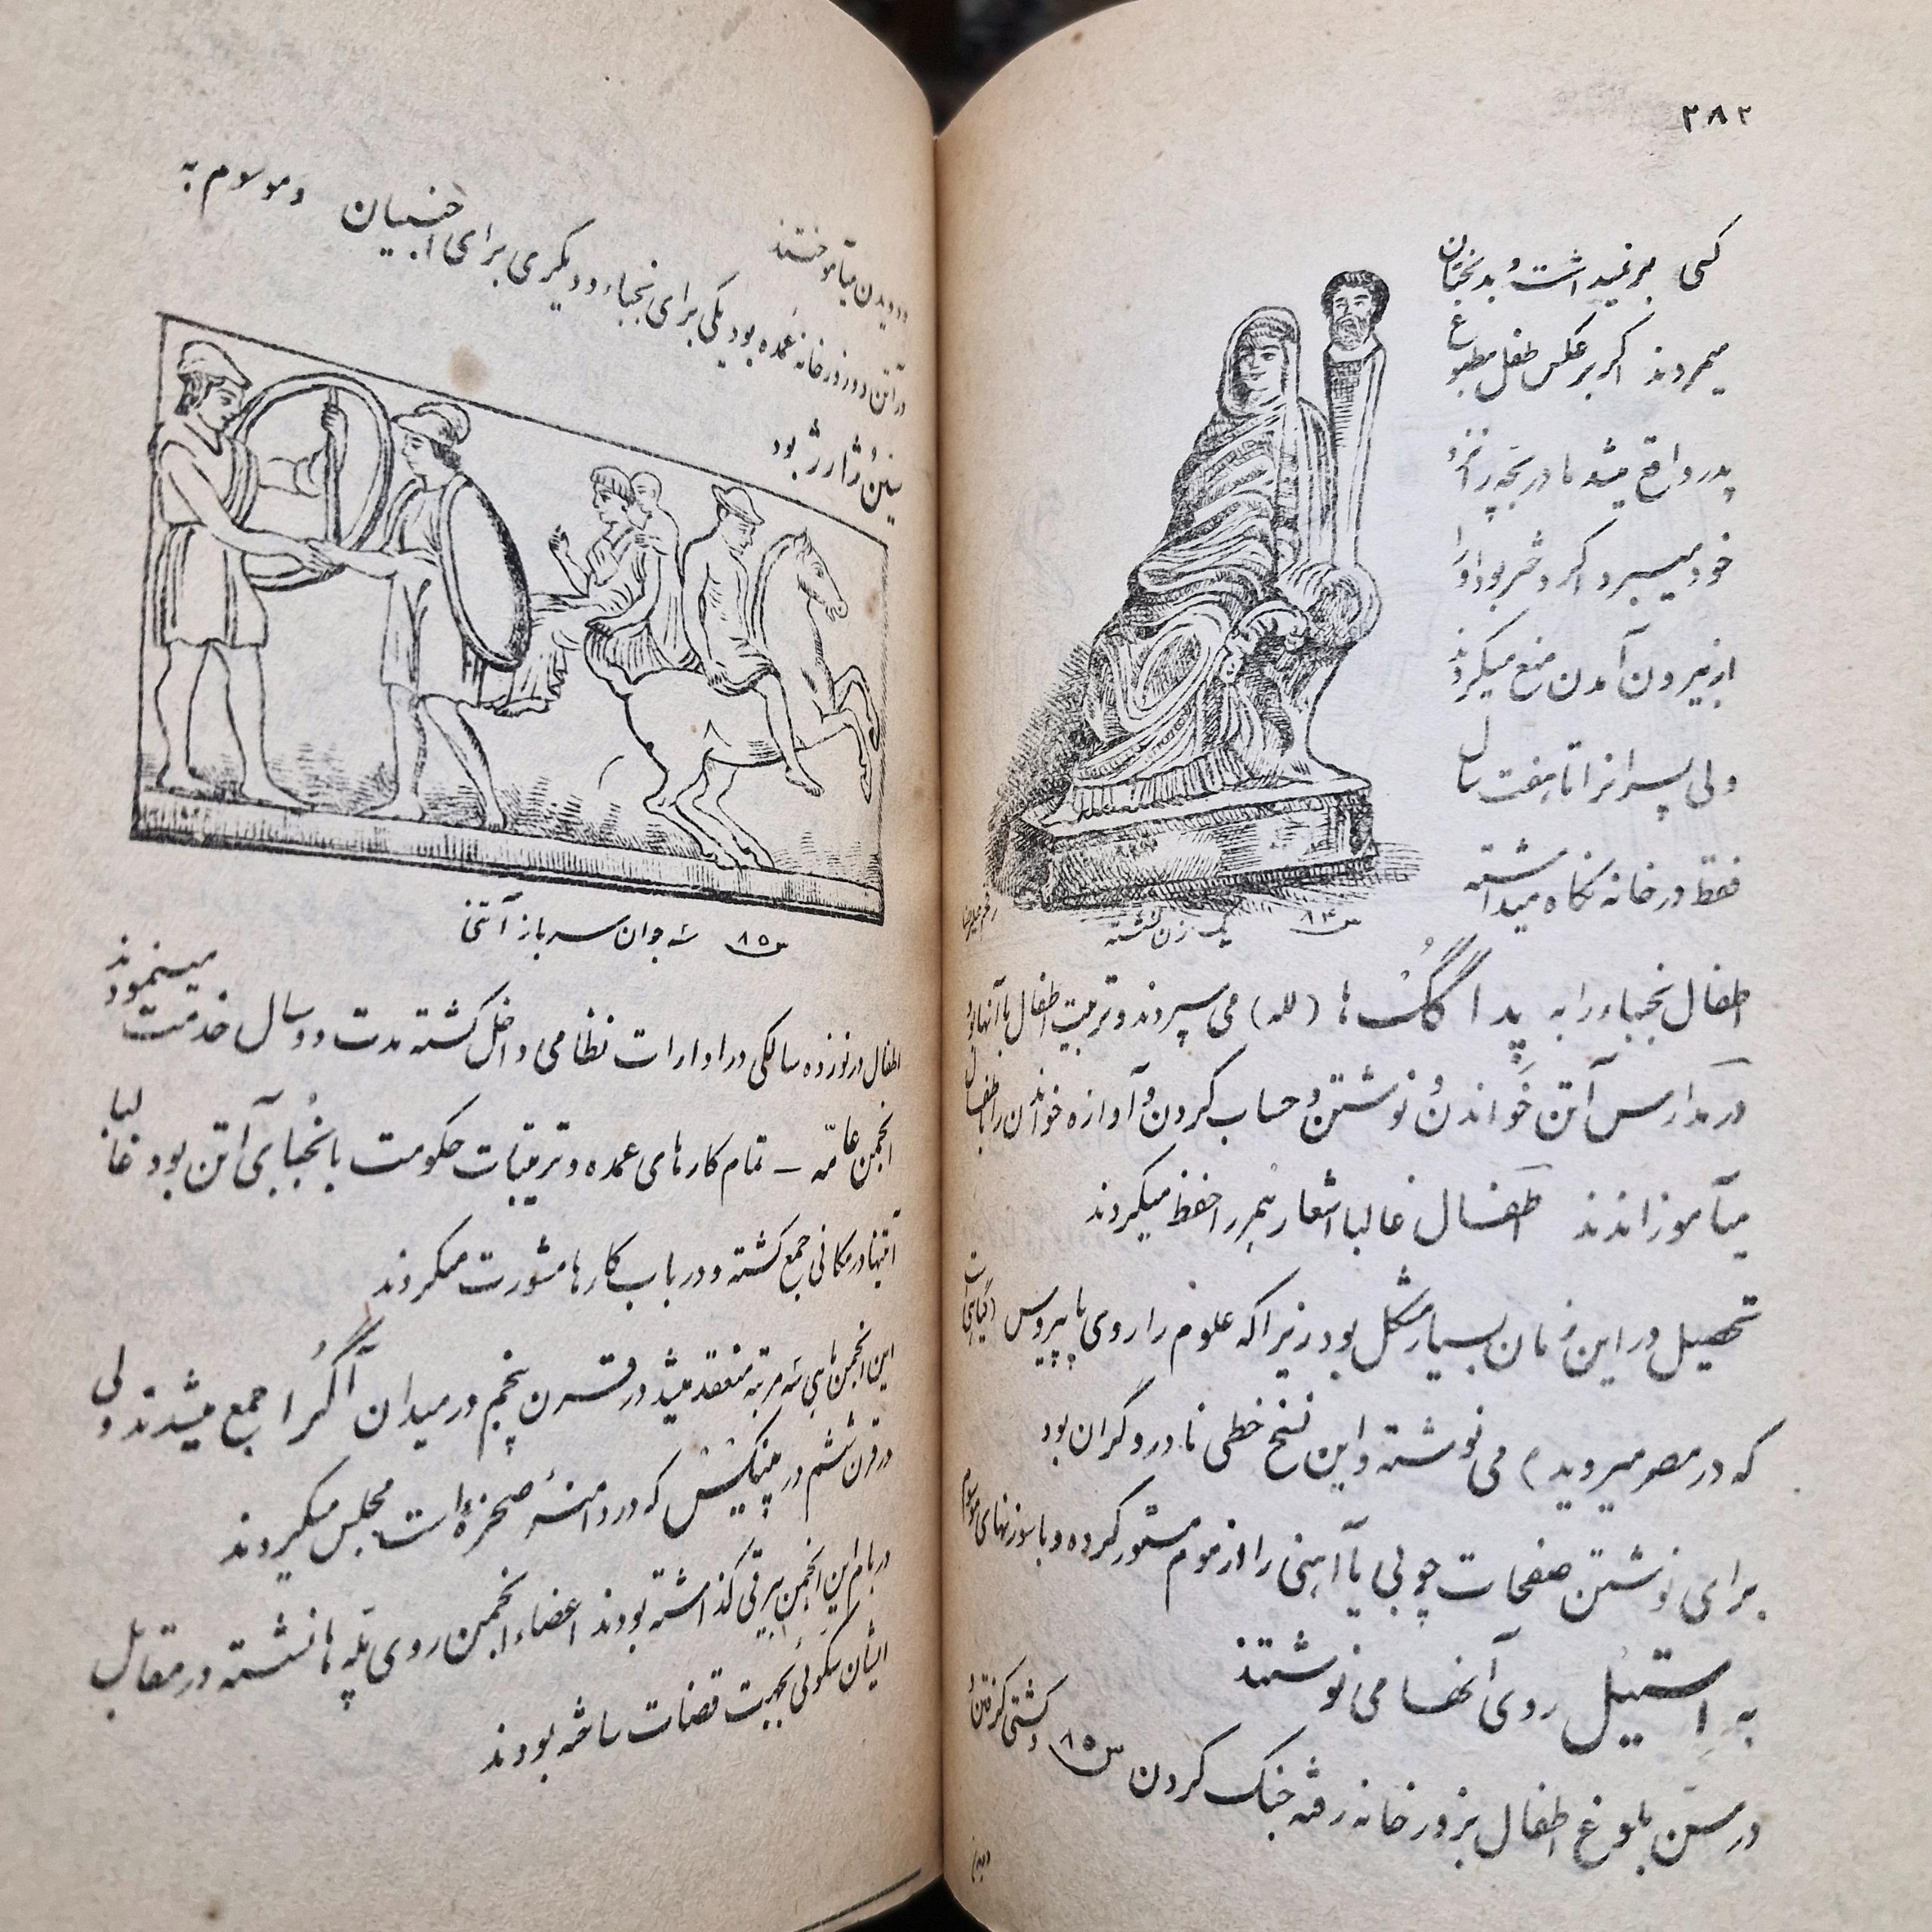 ۲۸۲
کسی برنمیداشت و بدبختان
میمردند اگر برعکس طفل مطبوع
پدر واقع میشد مادر بچه را نزد
خود میسپرد اگر دختر بود او را
از بیرون آمدن منع میکردند
ولی پسرانرا تا هفت سال
فقط در خانه نگاه میداشته
س ۸۴ یک زن نشسته
اطفال نجباء را به پداگگ ها (لله) می سپردند و تربیت اطفال با آنها بود
در مدارس آتن خواندن و نوشتن و حساب کردن و آوازه خواندن را باطفال
میآموزاندند اطفال غالبا اشعار همر را حفظ میکردند
تحصیل در این زمان بسیار مشکل بود زیرا که علوم را روی پاپیروس (گیاهی است
که در مصر میروید) می نوشته و این نسخ خطی نادر و گران بود
برای نوشتن صفحات چوبی یا آهنی را از موم مستور کرده و با سوزنهای موسوم
به استیل روی آنها می نوشتند
در سن بلوغ اطفال بزورخانه رفته جنک کردن س ۸۵ و کشتی گرفتن و
دویدن
و دویدن میآموختند
در آتن دو زورخانه عمده بود یکی برای نجباء و دیگری برای اجنبیان و موسوم به
سینوژارژ بود
س ۸۵ سه جوان سرباز آتنی
اطفال در نوزده سالگی در ادارات نظامی داخل گشته مدت دو سال خدمت مینمودند
انجمن عامه – تمام کارهای عمده و ترتیبات حکومت با نجبای آتن بود غالبا
آتنیها در مکانی جمع گشته و در باب کارها مشورت میکردند
این انجمن ماهی سه مرتبه منعقد میشد در قرن پنجم در میدان آگرا جمع میشدند ولی
در قرن ششم در پنیکس که در دامنه صخره است مجلس میکردند
در بام این انجمن بیرقی گذاشته بودند اعضاء انجمن روی پله ها نشسته در مقابل
ایشان سکوئی بجهت قضات ساخته بودند